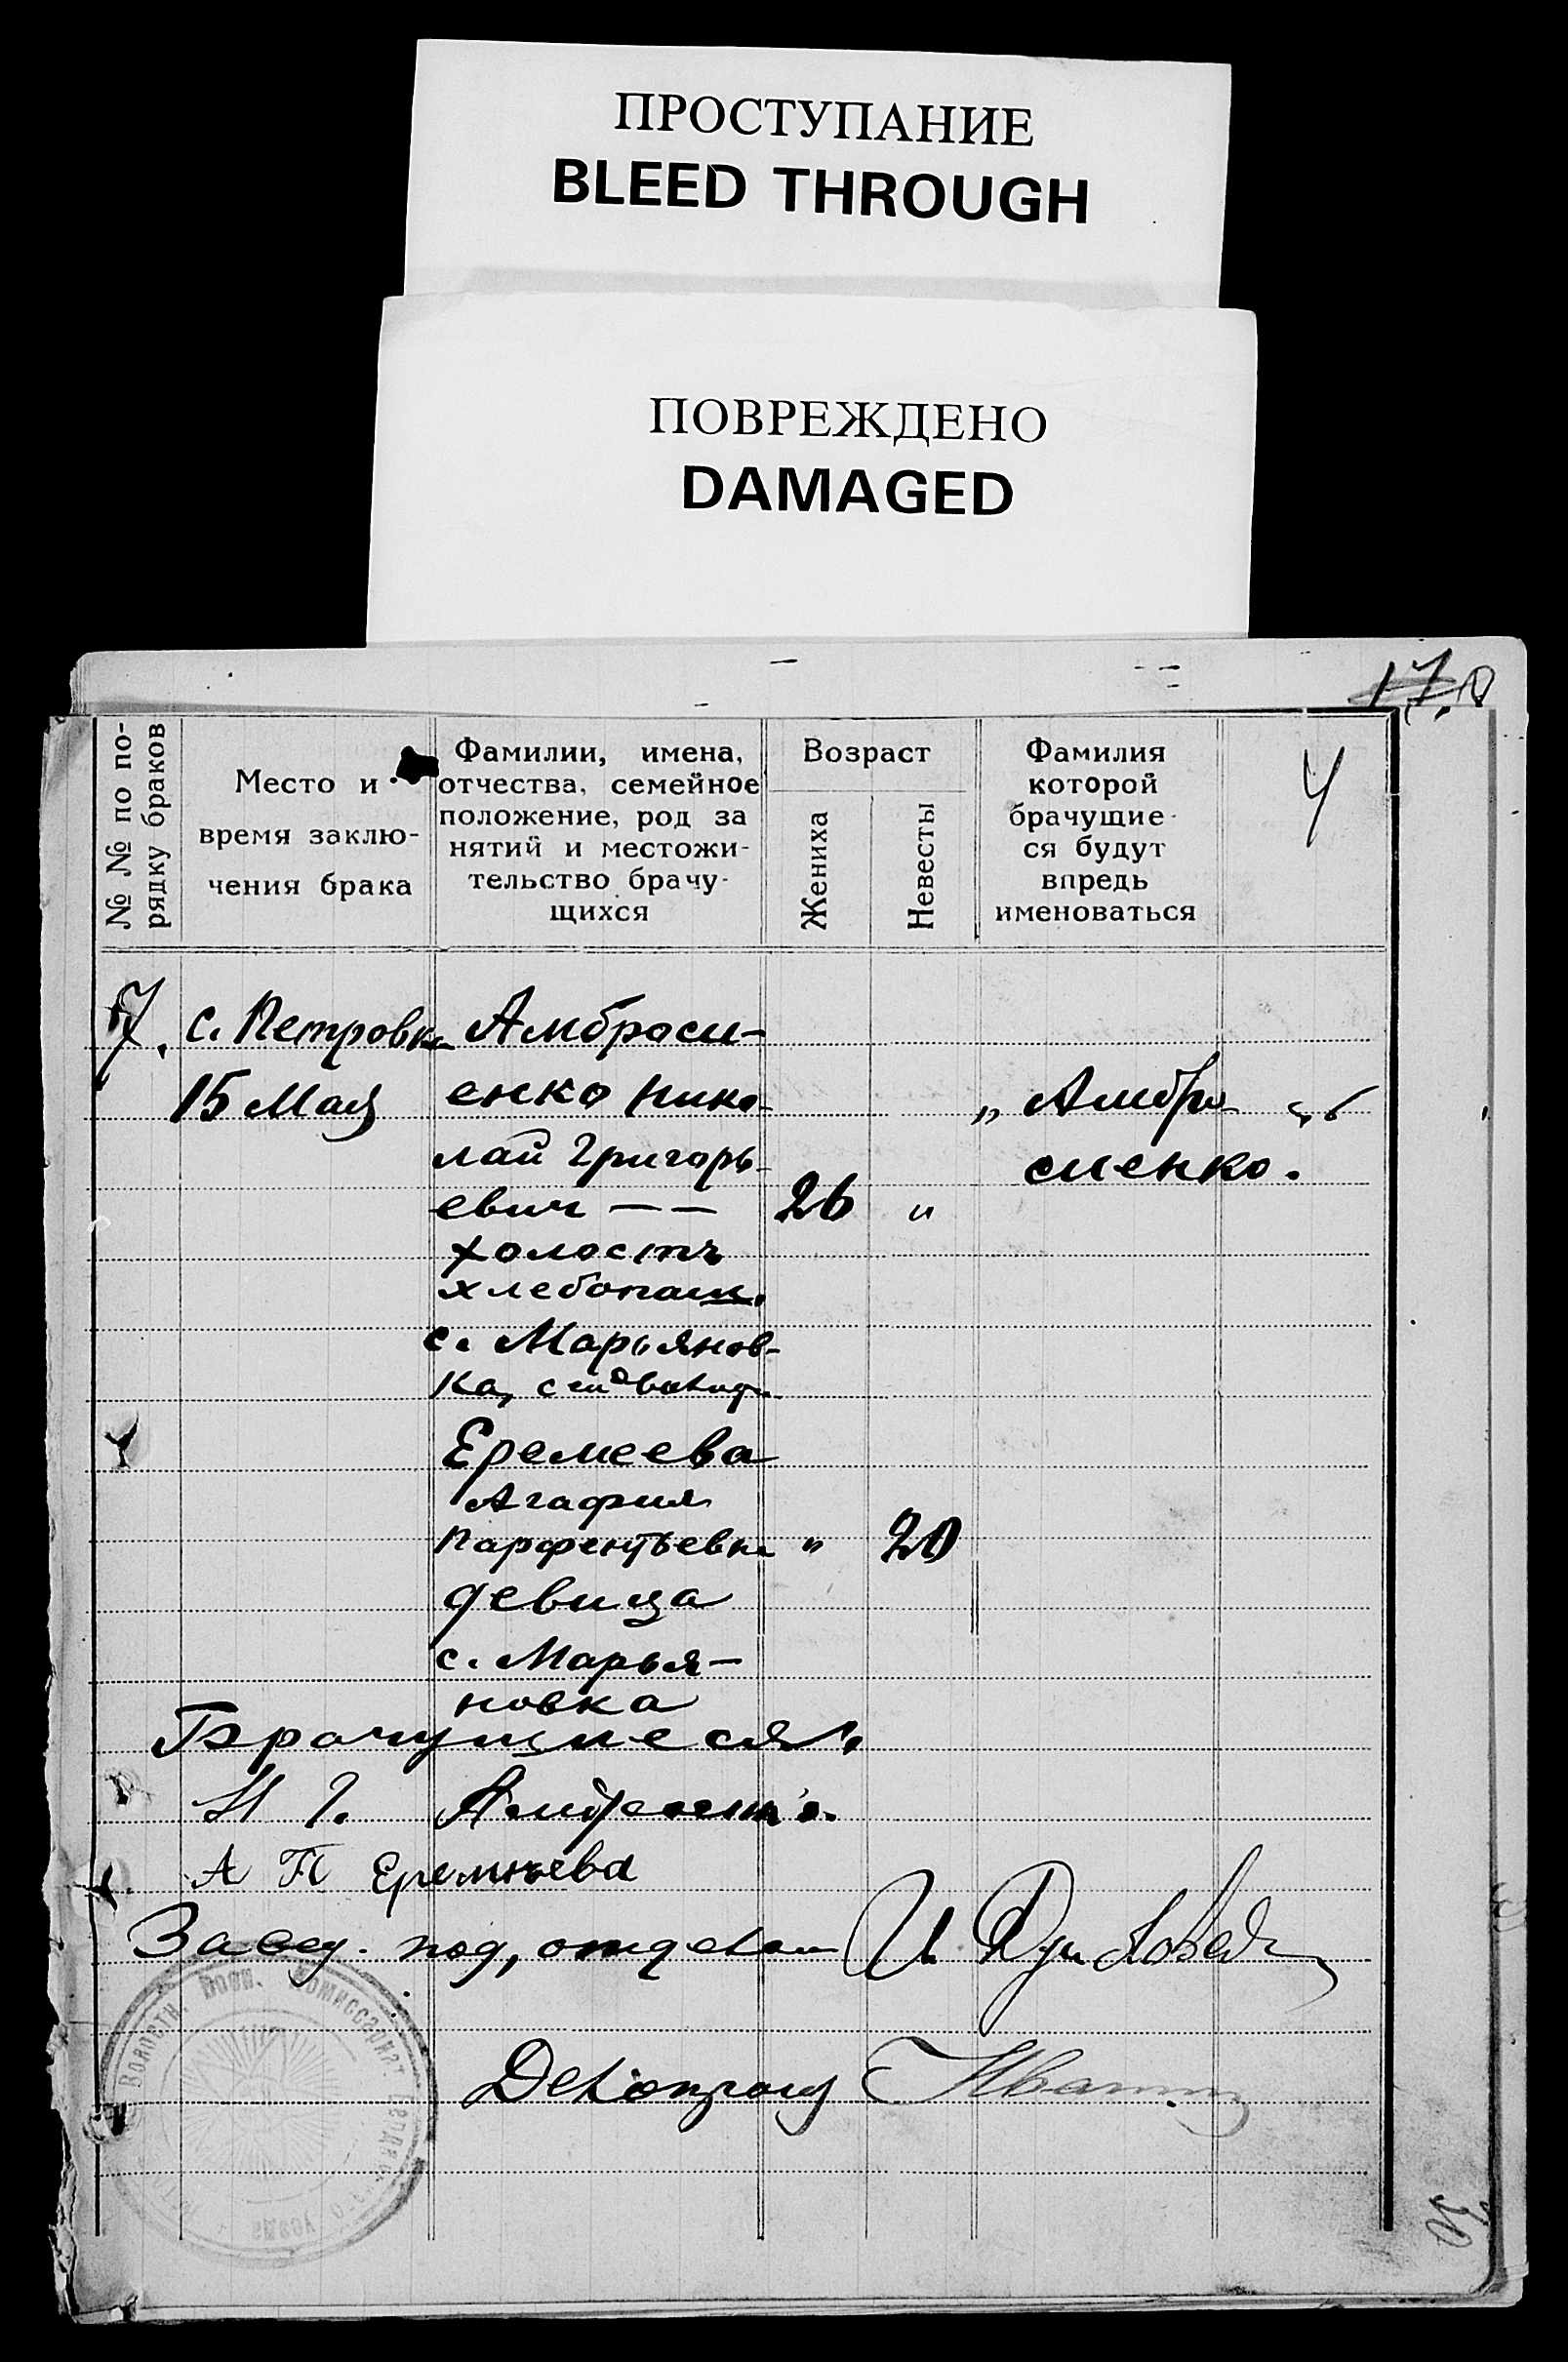 ПРОСТУПАНИЕ
BLEED THROUGH
ПОВРЕЖДЕНО
DAMAGED
17.
№ № по по-
рядку браков
Место и
время заклю-
чения брака
Фамилии, имена,
отчества, семейное
положение, род за
нятий и местожи-
тельство брачу-
щихся
Возраст
Жениха
Невесты
Фамилия
которой
брачущие-
ся будут
впредь
именоваться
4
7.
с. Петровка
15 Мая
Амброси-
енко Нико-
лай Григорь-
евич — —
холостъ
хлебопаш.
с. Марьянов-
ка,
26 "
„ Амбро
сиенко.
Еремеева
Агафия
Парфентьевна " 20
девица
с. Марья-
новка
Брачущиеся:
Н Г.
А П Еремѣева
Завед. под, отделом
Волостн. Воен. Комиссариат
Делопроизв